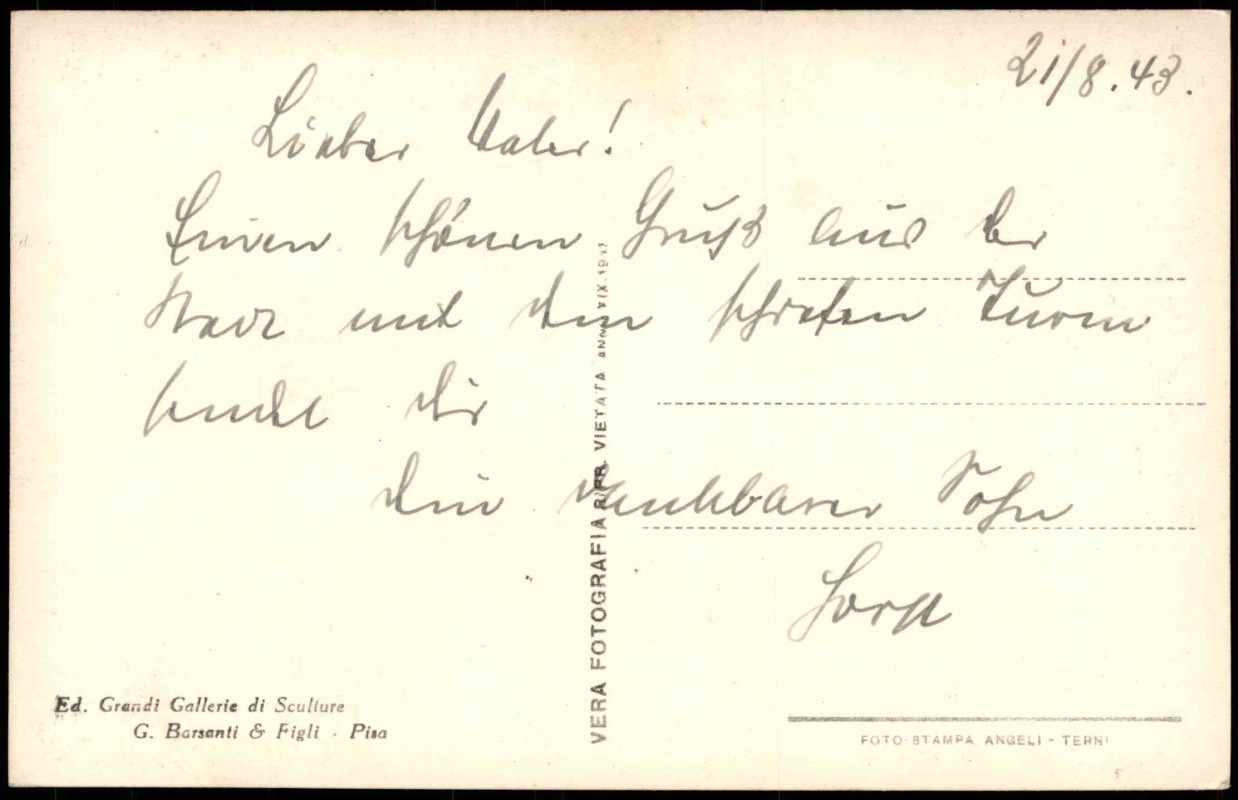 21/8.43.
Lieber Vater!
Einen schönen Gruß aus der
Stadt mit dem schiefen Turm
sendet dir
dein dankbarer Sohn
Horst
VERA FOTOGRAFIA RIPR. VIETATA ANNO XIX.
Ed. Grandi Gallerie di Sculture
G. Barsanti & Figli - Pisa
FOTO-STAMPA ANGELI - TERNI